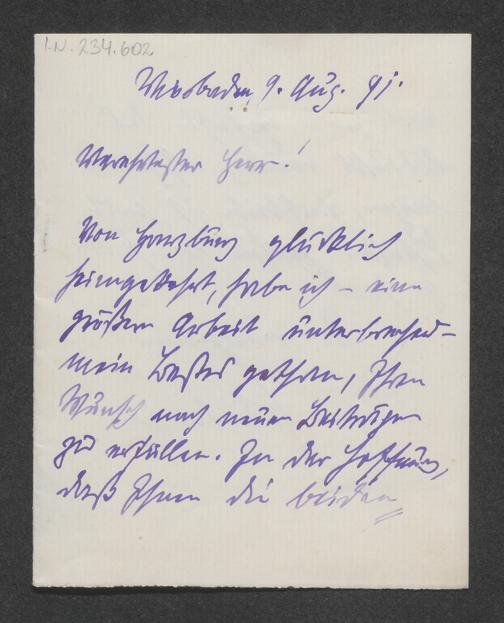 I.N. 234.602
Wiesbaden, 9. Aug. 91.
Verehrtester Herr!
Von Harzburg glücklich
heimgekehrt, habe ich – eine
größere Arbeit unterbrechend –
mein Bestes gethan, Ihren
Wunsch nach neuen Beiträgen
zu erfüllen. In der Hoffnung,
daß Ihnen die beiden